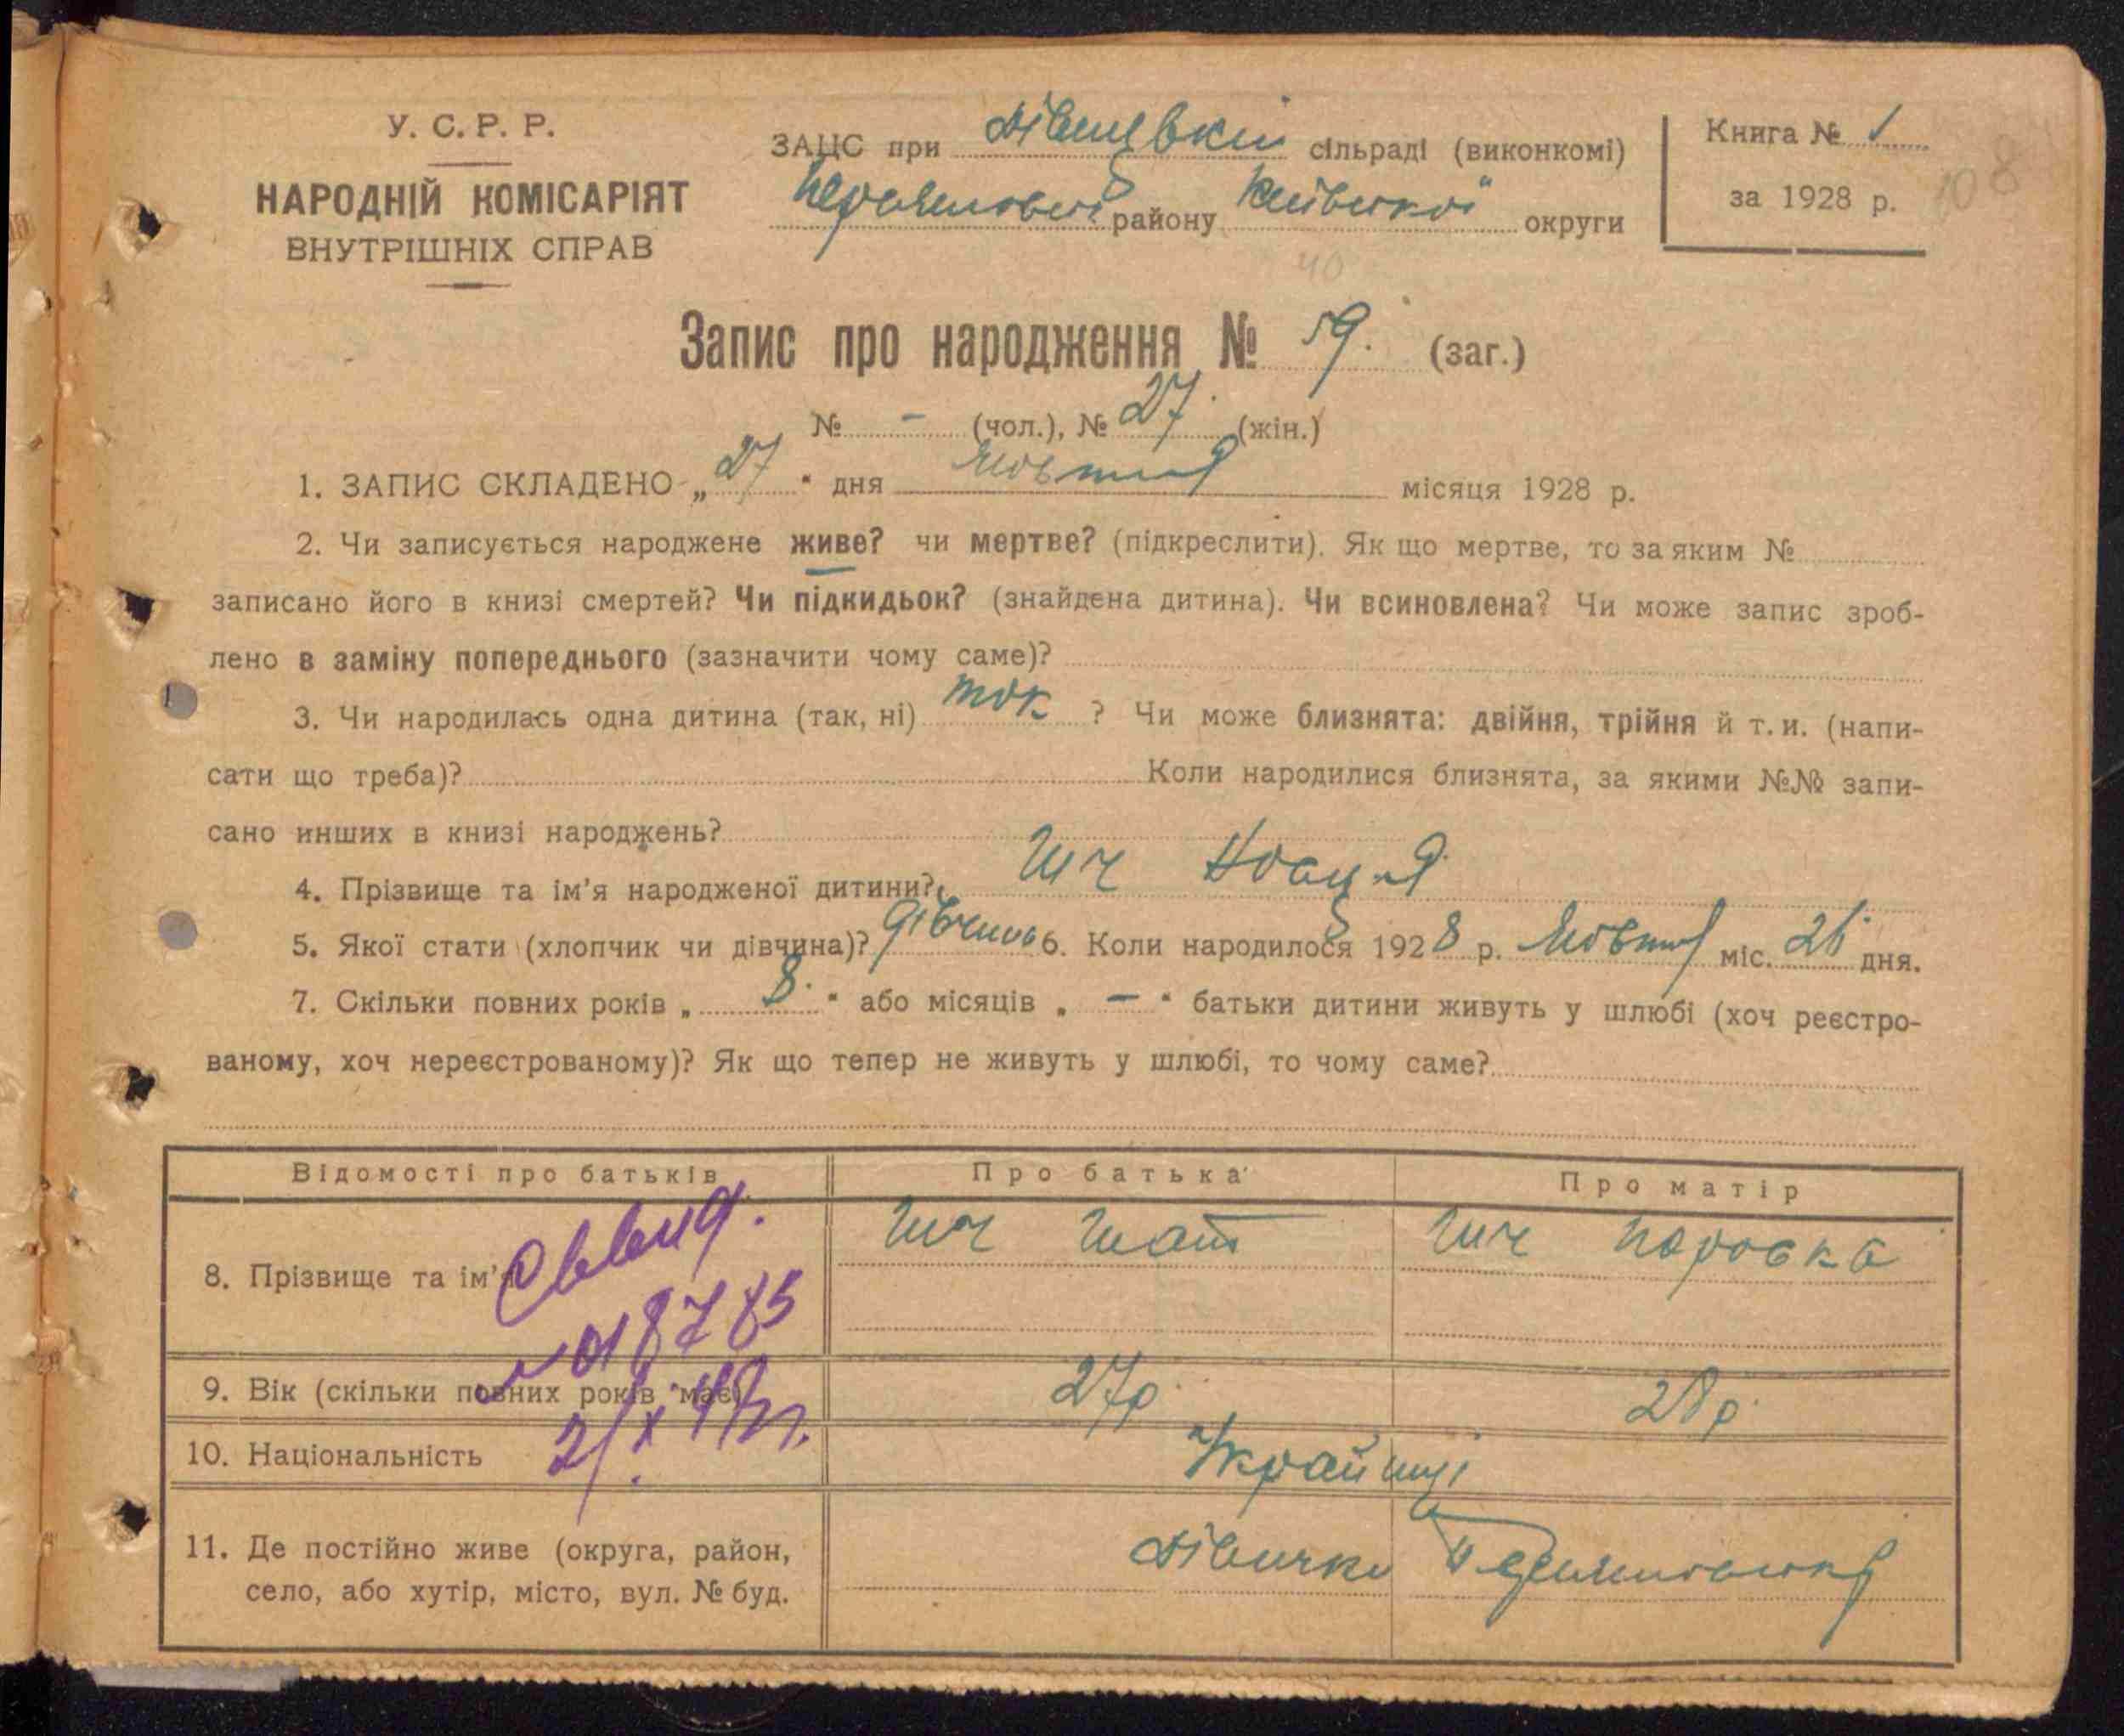 У. С. Р. Р.
НАРОДНІЙ КОМІСАРІЯТ
ВНУТРІШНІХ СПРАВ
ЗАЦС при сільраді (виконкомі)
району Київської округи
Книга № 1
за 1928 р.
108
40
Запис про народження № 59. (заг.)
№ - (чол.), № 27. (жін.)
1. ЗАПИС СКЛАДЕНО „27" дня Жовтня місяця 1928 р.
2. Чи записується народжене живе? чи мертве? (підкреслити). Як що мертве, то за яким №
записано його в книзі смертей? Чи підкидьок? (знайдена дитина). Чи всиновлена? Чи може запис зроб-
лено в заміну попереднього (зазначити чому саме)?
3. Чи народилась одна дитина (так, ні) так ? Чи може близнята: двійня, трійня й т. и. (напи-
сати що треба)? Коли народилися близнята, за якими №№ запи-
сано инших в книзі народжень?
4. Прізвище та ім'я народженої дитини?
5. Якої стати (хлопчик чи дівчина)? дівчина 6. Коли народилося 1928 р. Жовтня міс. 26 дня.
7. Скільки повних років „ 8. " або місяців „ — " батьки дитини живуть у шлюбі (хоч реєстро-
ваному, хоч нереєстрованому)? Як що тепер не живуть у шлюбі, то чому саме?
Відомості про батьків Про батька Про матір
8. Прізвище та ім'я
9. Вік (скільки повних років має) 27р. 28р.
10. Національність Українці
11. Де постійно живе (округа, район,
село, або хутір, місто, вул. № буд. Дівички